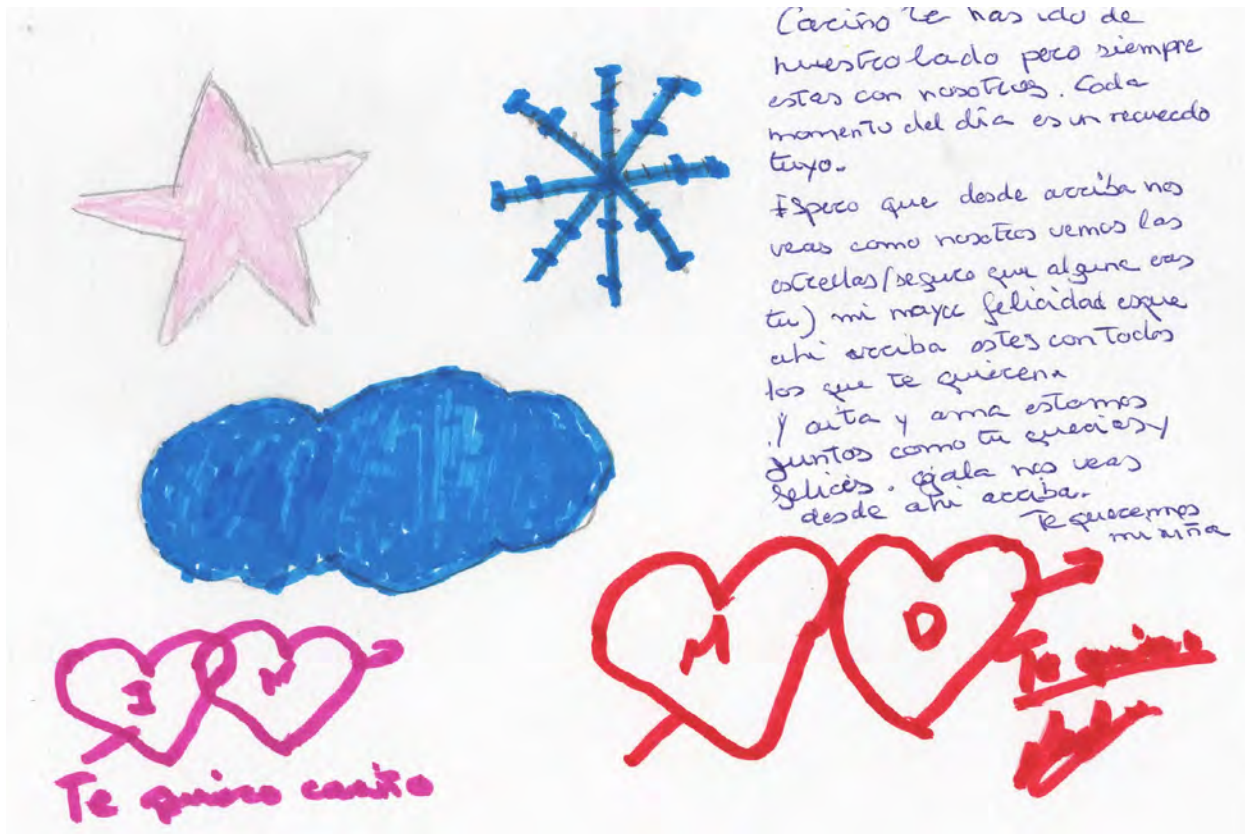 Cariño te has ido de
nuestro lado pero siempre
estas con nosotros. Cada
momento del día es un recuerdo
tuyo.
Espero que desde arriba nos
veas como nosotros vemos las
estrellas (seguro que alguna eres
tu) mi mayor felicidad es que
ahi arriba estes con todos
los que te quieren.
Y aita y ama estamos
juntos como tu querias y
felices. Ojala nos veas
desde ahi arriba.
Te queremos
mi niña
M
D
Te quiero
I
M
Te quiero cariño